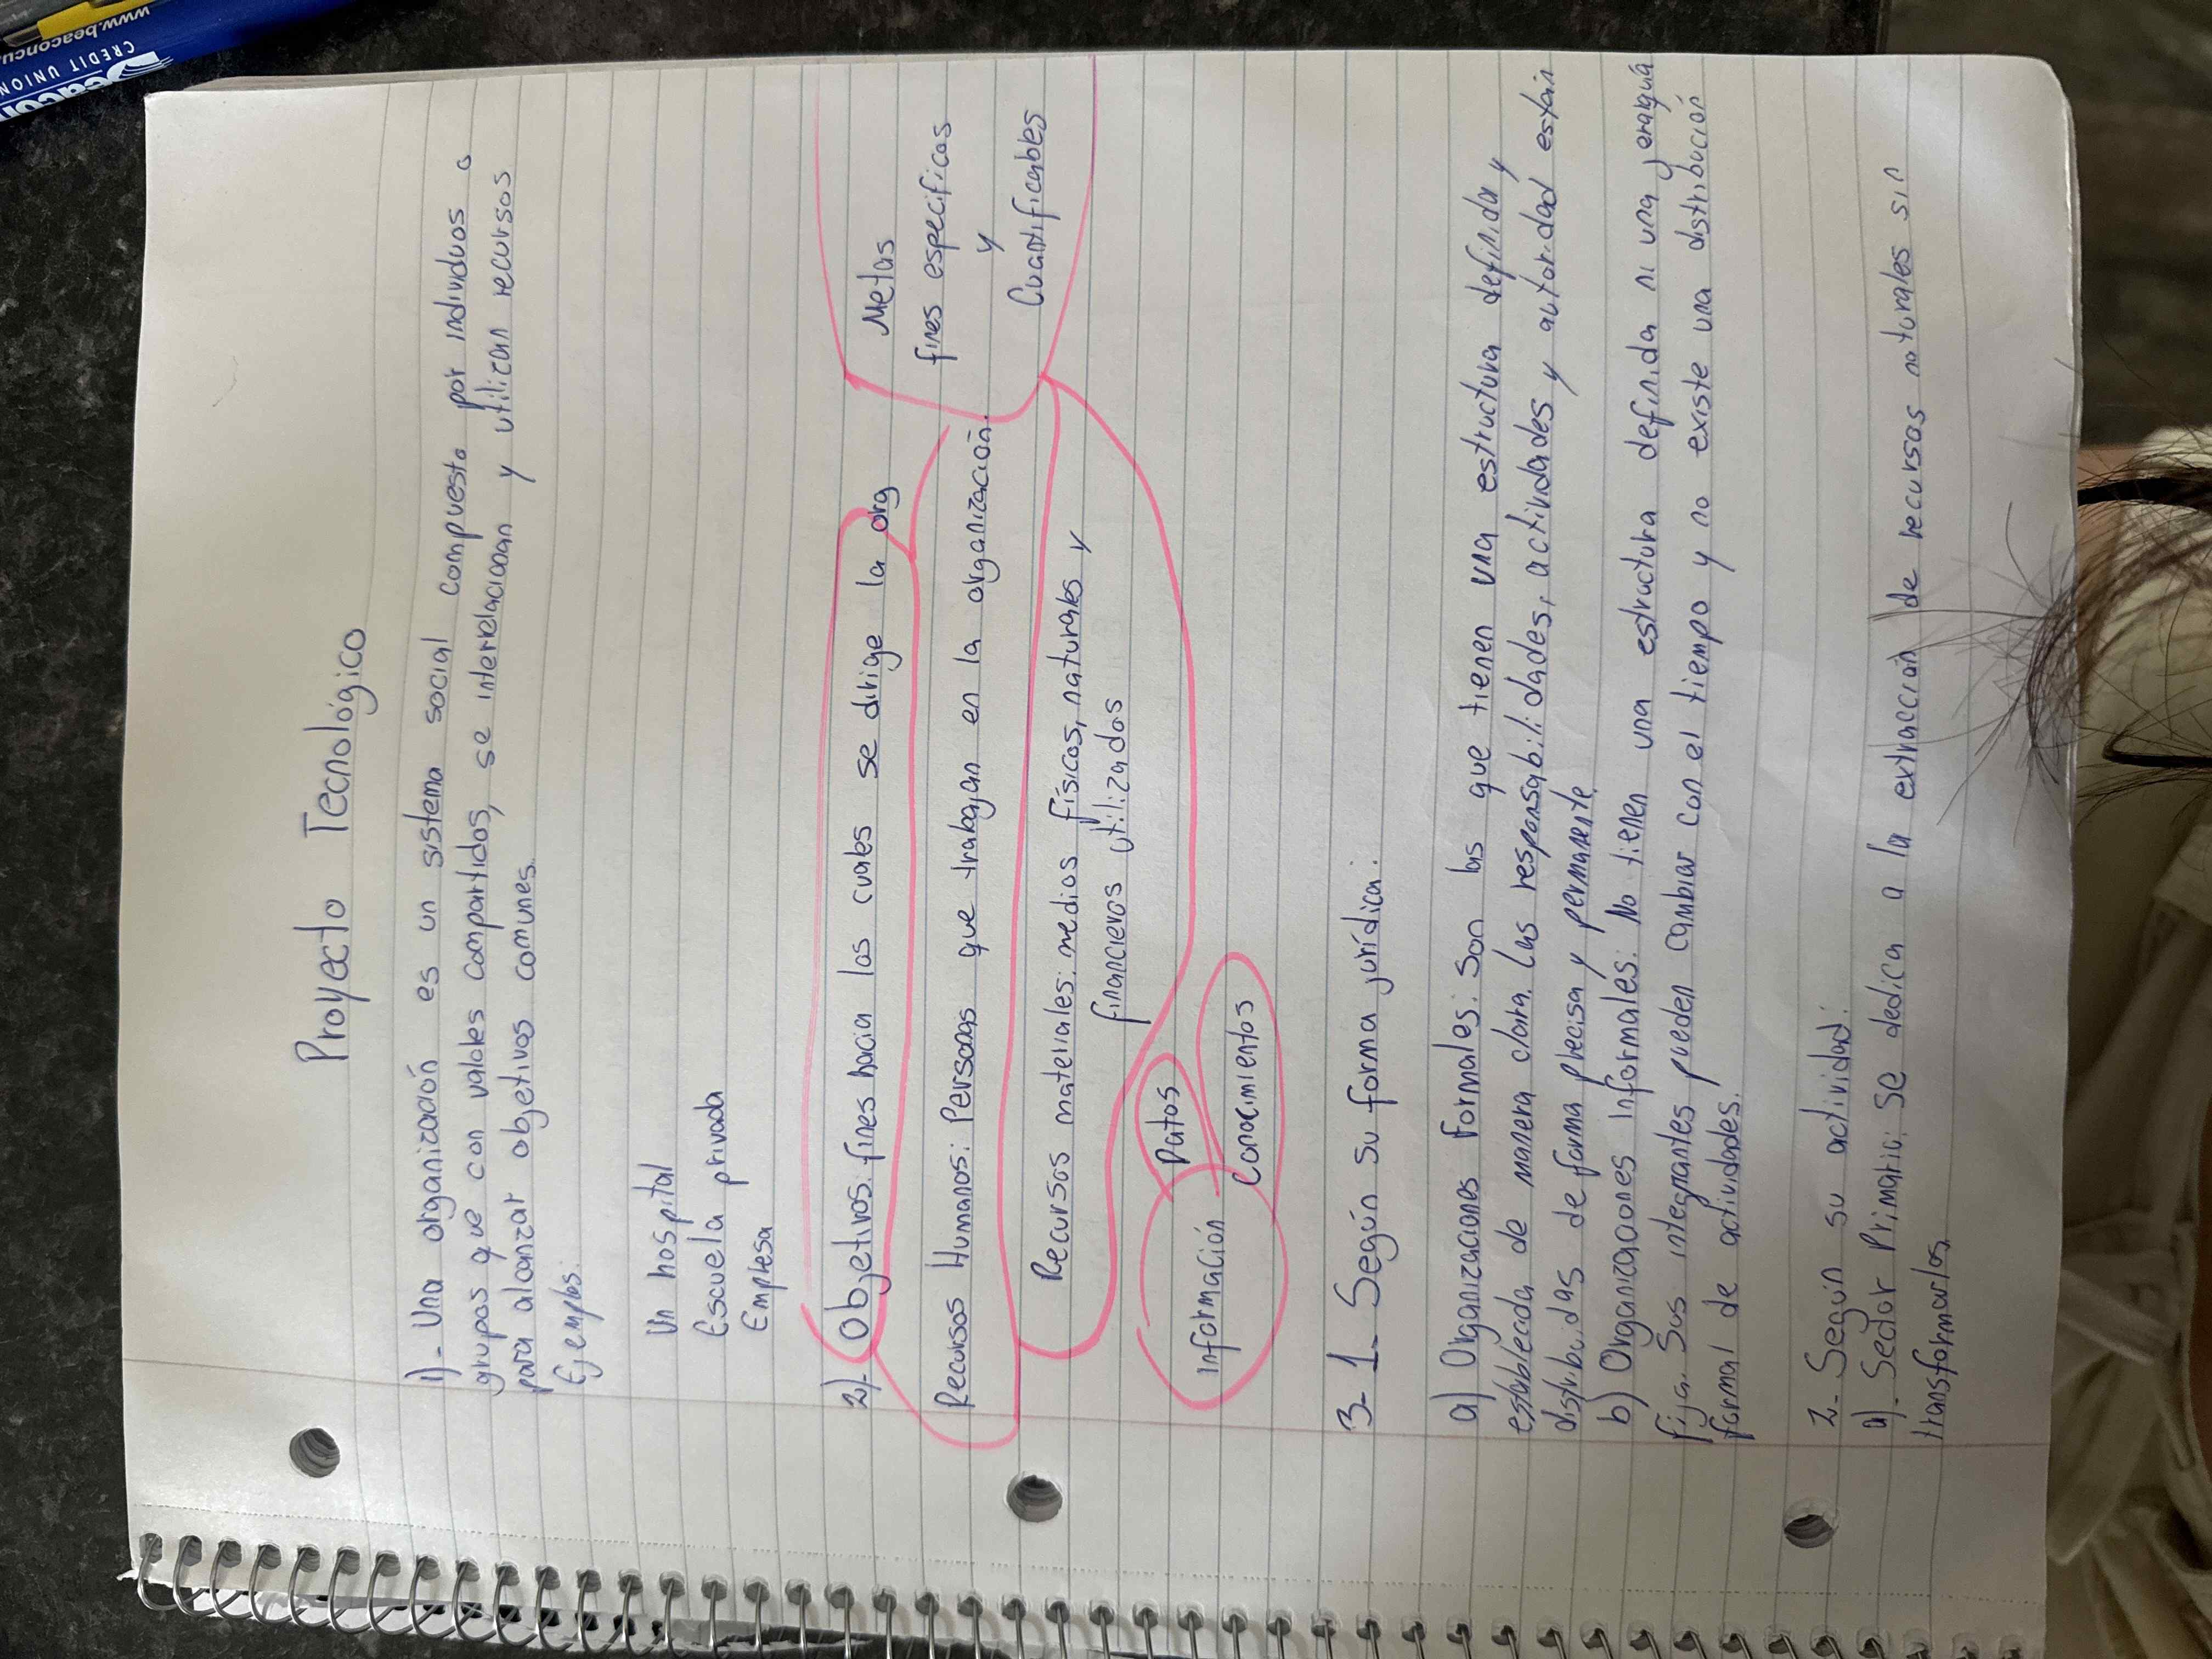 Proyecto Tecnológico
1)- Una organización es un sistema social compuesto por individuos o
grupos que con valores compartidos, se interrelacionan y utilizan recursos
para alcanzar objetivos comunes.
Ejemplos:
Un hospital
Escuela privada
Empresa
2)- Objetivos: fines hacia los cuales se dirige la org
Metas
fines especificos
y
Cuantificables
Recursos Humanos: Personas que trabajan en la organización.
Recursos materiales: medios físicos, naturales y
financieros utilizados
Información
Datos
Conocimientos
3- 1- Según su forma jurídica:
a) Organizaciones formales: Son las que tienen una estructura definida y
establecida de manera clara. Las responsabilidades, actividades y autoridad están
distribuidas de forma precisa y permanente.
b) Organizaciones Informales: No tienen una estructura definida ni una jerarquía
fija. Sus integrantes pueden cambiar con el tiempo y no existe una distribución
formal de actividades.
2- Según su actividad:
a)- Sector Primario: Se dedica a la extracción de recursos naturales sin
transformarlos.
CREDIT UNION
www.beaconcu